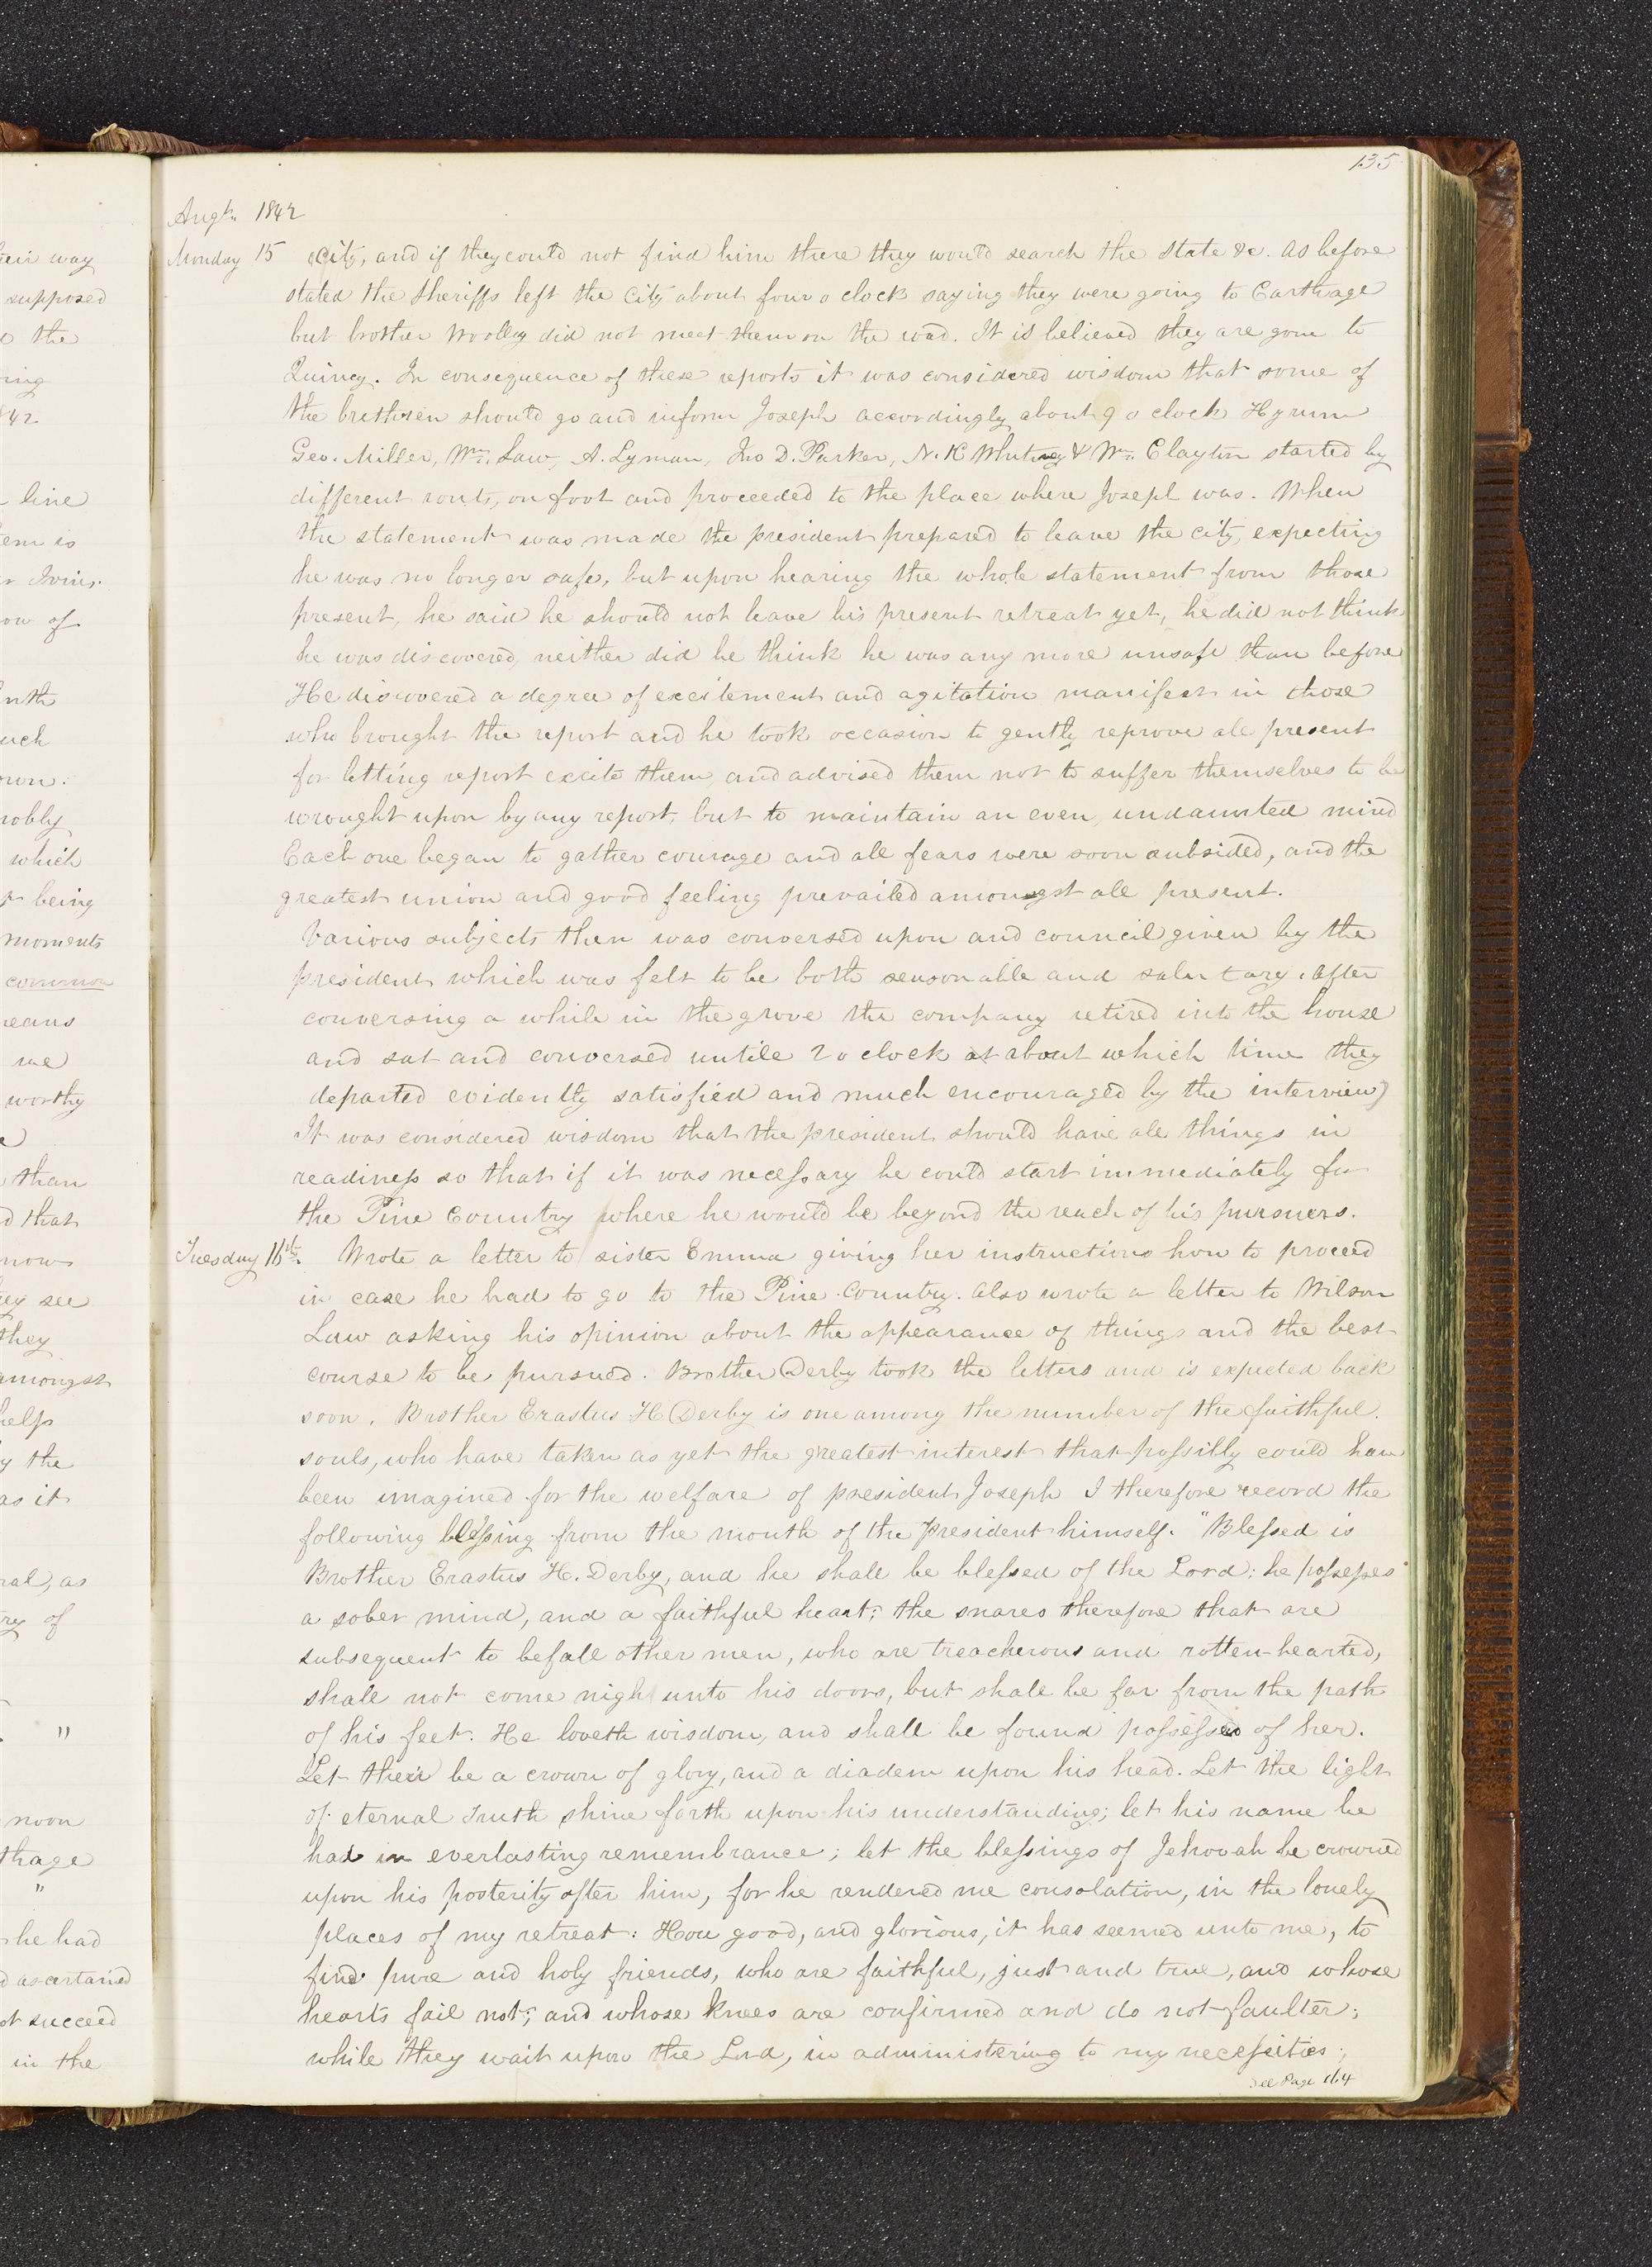 135
Augt. 1842
Monday 15 City, and if they could not find him there they would search the state &c. As before
stated the Sheriffs left the City about four o clock saying they were going to Carthage
but brother Woolley did not meet them on the road. It is believed they are gone to
Quincy. In consequence of these reports it was considered wisdom that some of
the brethren should go and inform Joseph accordingly about 9 o clock Hyrum
Geo. Miller, Wm. Law, A. Lyman, Jno D. Parker, N. K Whitney & Wm. Clayton started by
different routs, on foot and proceeded to the place where Joseph was. When
the statement was made the president prepared to leave the city, expecting
he was no longer safe, but upon hearing the whole statement from those
present, he said he should not leave his present retreat yet, he did not think
he was discovered, neither did he think he was any more unsafe than before
He discovered a degree of excitement and agitation manifest in those
who brought the report and he took occasion to gently reprove all present
for letting report excite them, and advised them not to suffer themselves to be
wrought upon by any report, but to maintain an even, undaunted mind
Each one began to gather courage and all fears were soon subsided, and the
greatest union and good feeling prevailed amongst all present.
Various subjects then was conversed upon and council given by the
president which was felt to be both seasonable and salutary. After
conversing a while in the grove the company retired into the house
and sat and conversed untile 2 o clock at about which time they
departed evidently satisfied and much encouraged by the interview)
It was considered wisdom that the president should have all things in
readiness so that if it was necessary he could start immediately for
the Pine Country where he would be beyond the reach of his pursuers.
Tuesday 16th. Wrote a letter to sister Emma giving her instructions how to proceed
in case he had to go to the Pine Country. Also wrote a letter to Wilson
Law asking his opinion about the appearance of things and the best
course to be pursued. Brother Derby took the letters and is expected back
soon. Brother Erastus H Derby is one among the number of the faithful
souls, who have taken as yet the greatest interest that possibly could have
been imagined for the welfare of president Joseph I therefore record the
following blessing from the mouth of the President himself. "Blessed is
Brother Erastus H. Derby, and he shall be blessed of the Lord; he possesses
a sober mind, and a faithful heart; the snares therefore that are
subsequent to befall other men, who are treacherous and rotten-hearted,
shall not come nigh unto his doors, but shall be far from the path
of his feet. He loveth wisdom, and shall be found possessed of her.
Let their be a crown of glory, and a diadem upon his head. Let the light
of eternal Truth shine forth upon his understanding; let his name be
had in everlasting remembrance; let the blessings of Jehovah be crowned
upon his posterity after him, for he rendered me consolation, in the lonely
places of my retreat: How good, and glorious, it has seemed unto me, to
find pure and holy friends, who are faithful, just and true, and whose
hearts fail not; and whose knees are confirmed and do not faulter;
while they wait upon the Lord, in administering to my necessities;
see Page 164